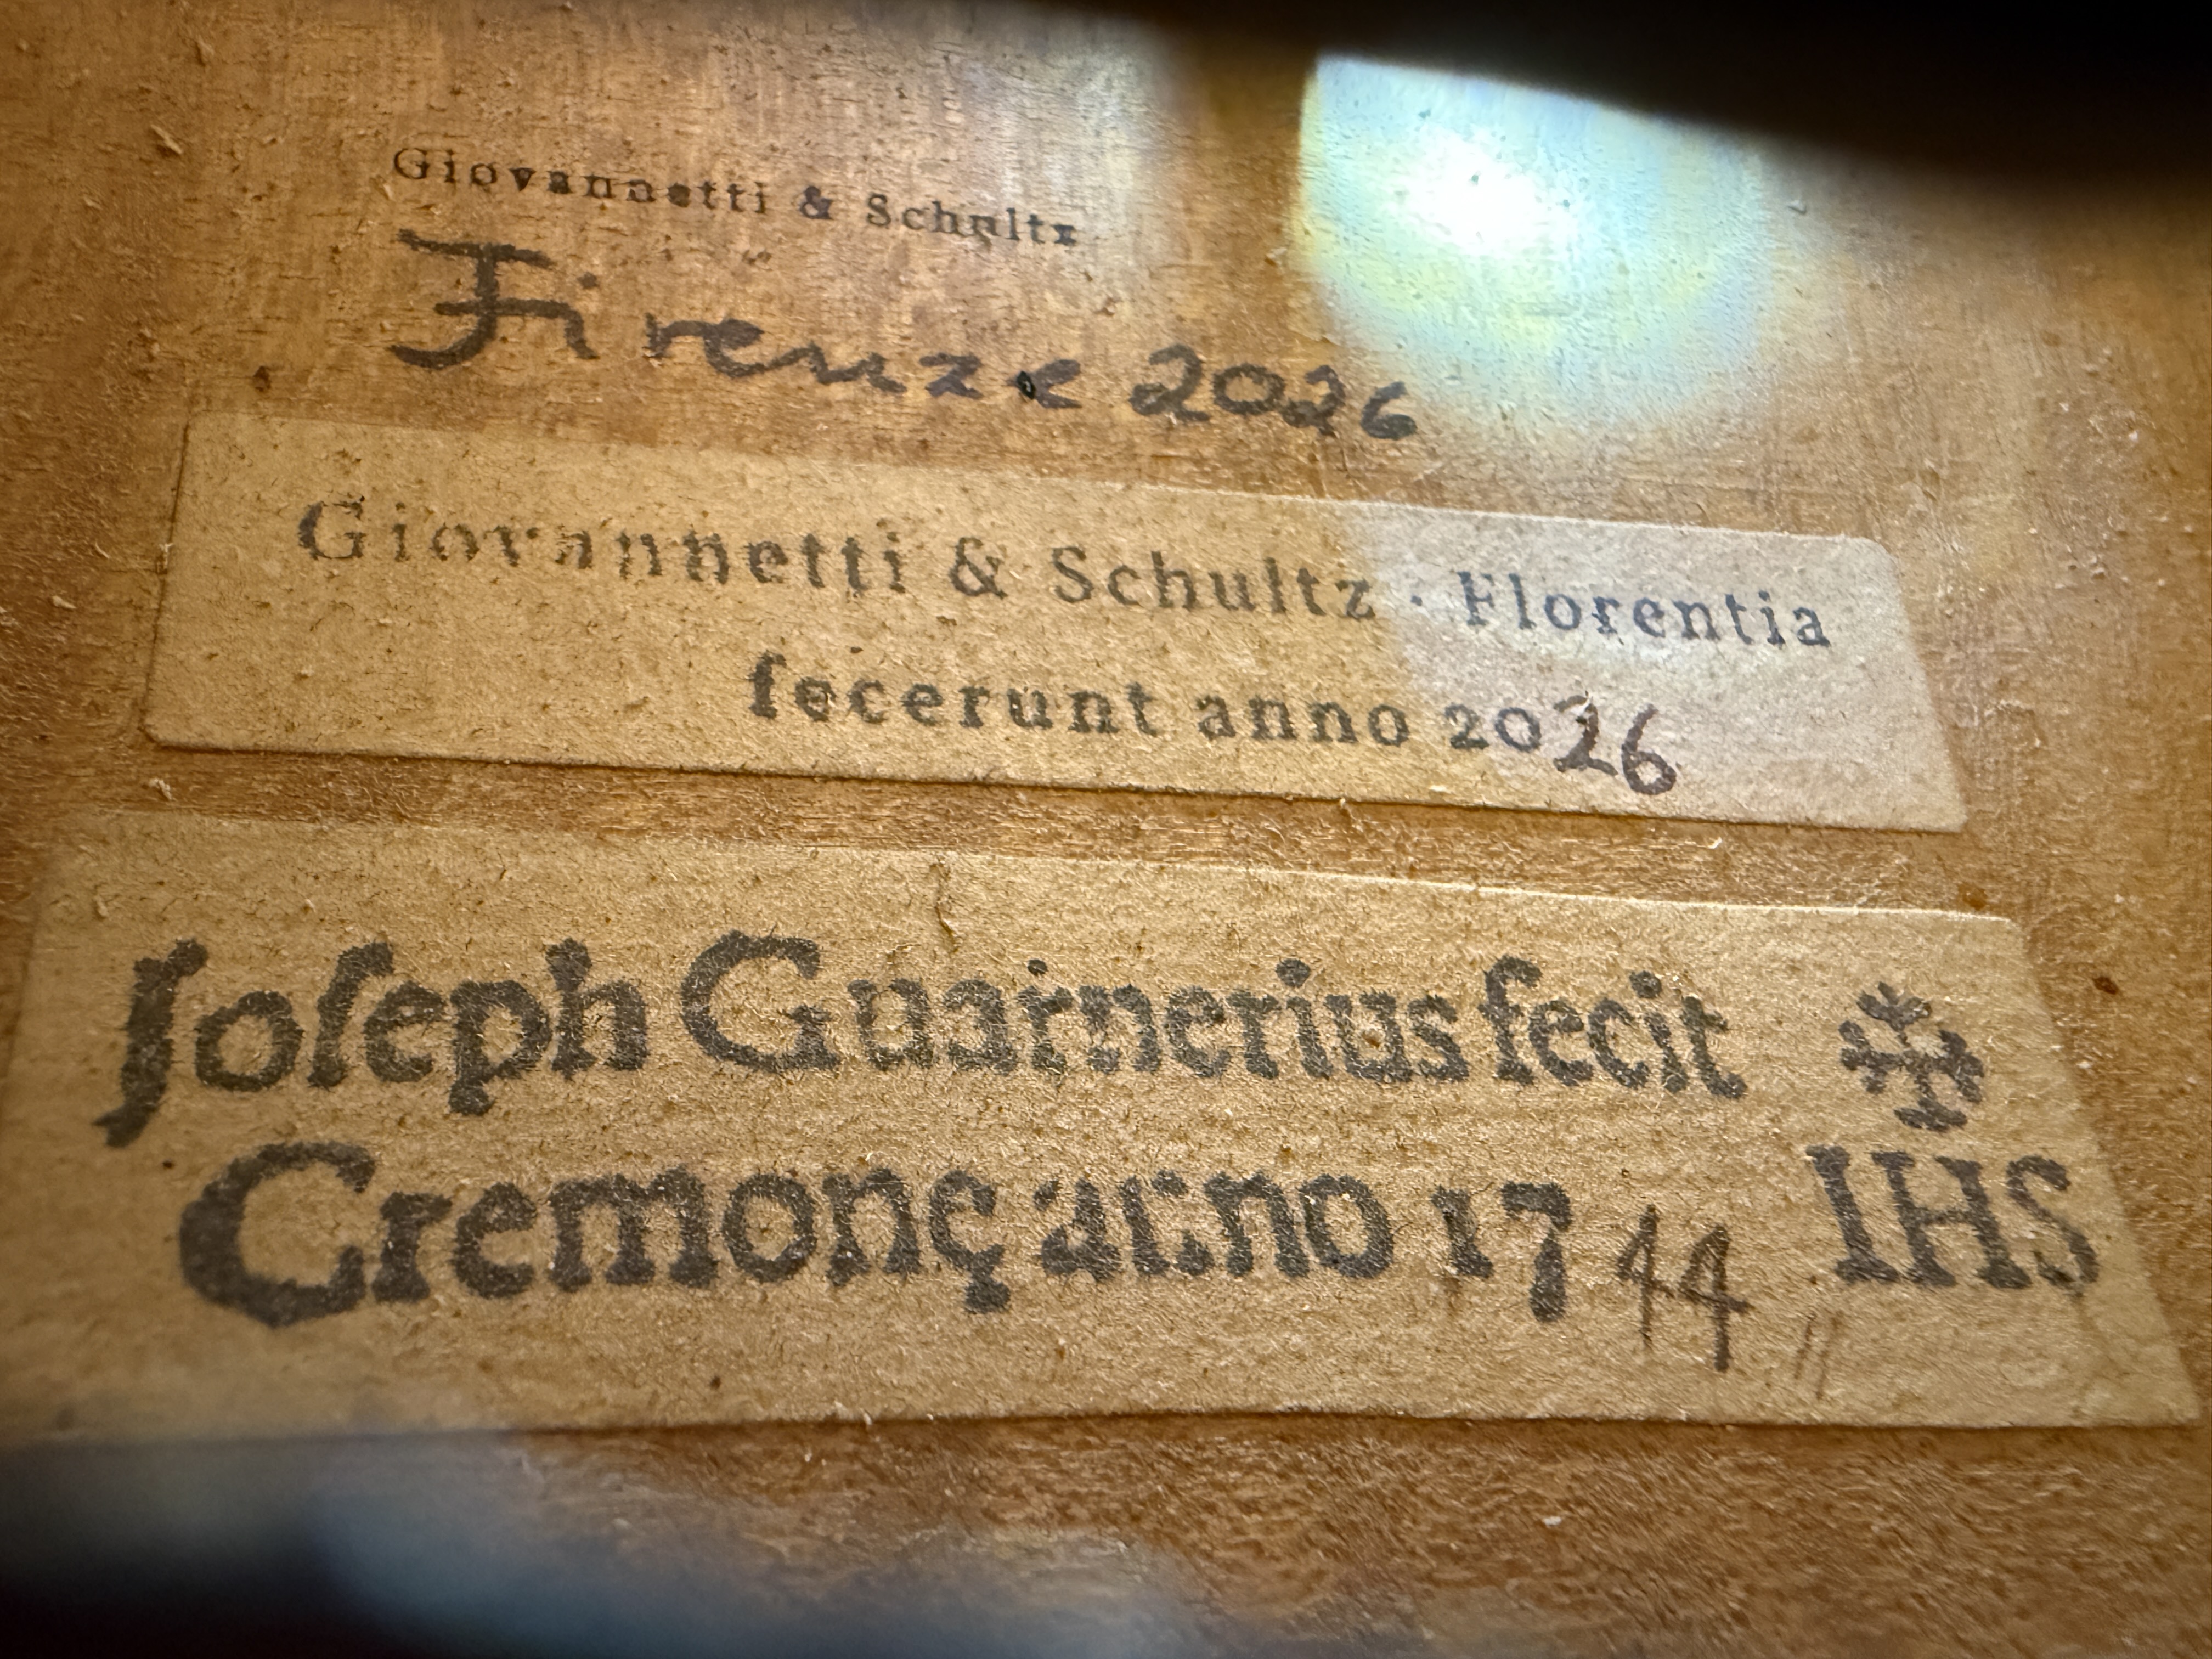 Giovannetti & Schultz
Firenze 2026
Giovannetti & Schultz · Florentia
fecerunt anno 2026
Joſeph Guarnerius fecit
Cremonę anno 1744 IHS